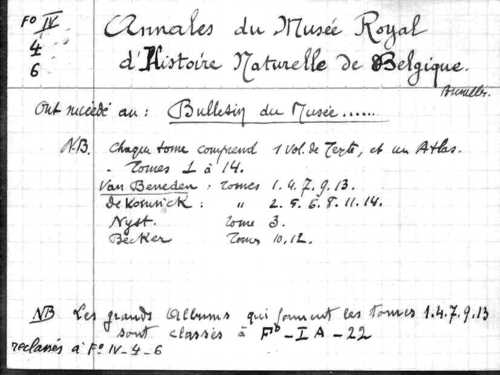 Fº IV
4
6
Annales du Musée Royal
d'Histoire Naturelle de Belgique.
Bruxelles.
Ont succédé au : Bulletin du Musée......
NB. Chaque tome comprend 1 vol. de Texte, et un Atlas.
- Tomes 1 à 14.
Van Beneden : Tomes 1.4.7.9.13.
De Koninck : " 2.5.6.8.11.14.
Nyst. Tome 3.
Becker Tomes 10,12.
NB Les grands Albums qui forment les tomes 1.4.7.9.13
sont classés à Fb-IA-22
reclassés à Fº IV-4-6